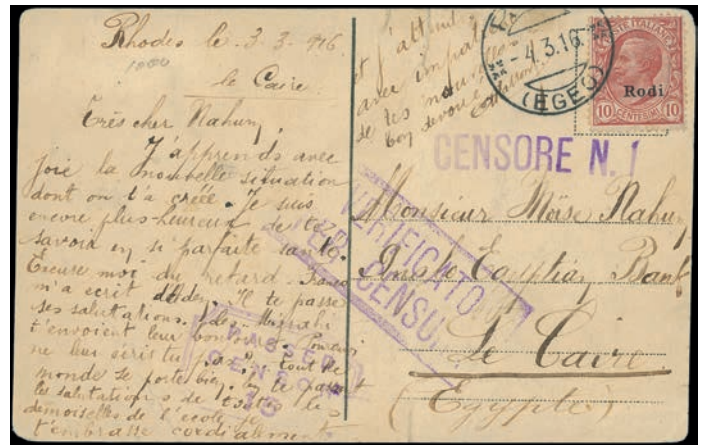 Rhodes le 3-3-916
1000
le Caire
Très cher Nahum,
J'apprends avec
joie la nouvelle situation
dont on t'a créée. Je suis
encore plus heureux de te
savoir en si parfaite santé.
Excuse moi du retard. Franco
m'a ecrit d'Aden. Il te passe
ses salutations. Mizrahi
t'envoient leur bonjour. Pourquoi
ne leur écris tu pas? tout le
monde se porte bien. te passe
les salutations de toutes les
demoiselles de l'école je
t'embrasse cordialement
et j'attends
avec impat
de tes nouvelles
ton dévoué
-4.3.16
(EGEO)
POSTE ITALIANE
Rodi
10 CENTESIMI 10
CENSORE N. 1
VERIFICATO
PER CENSURA
PASSED
CENSOR
Monsieur Moïse Nahum
Bank
Le Caire
(Egypte)